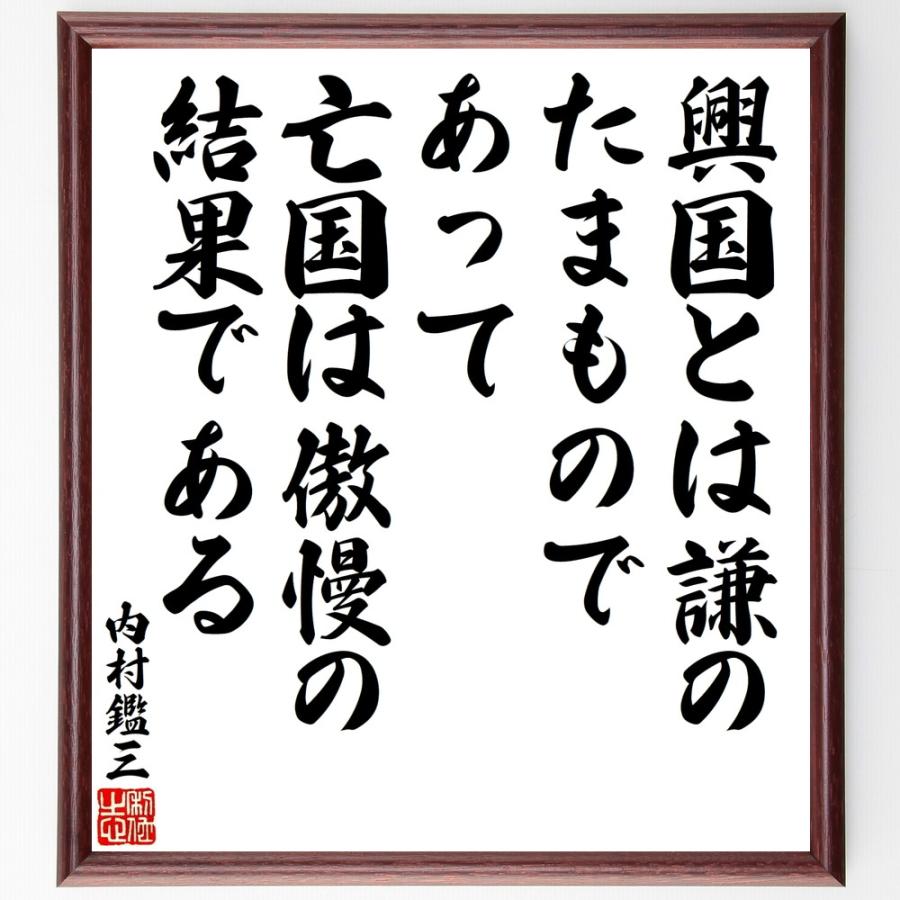 興国とは謙の
たまもので
あって
亡国は傲慢の
結果である
内村鑑三